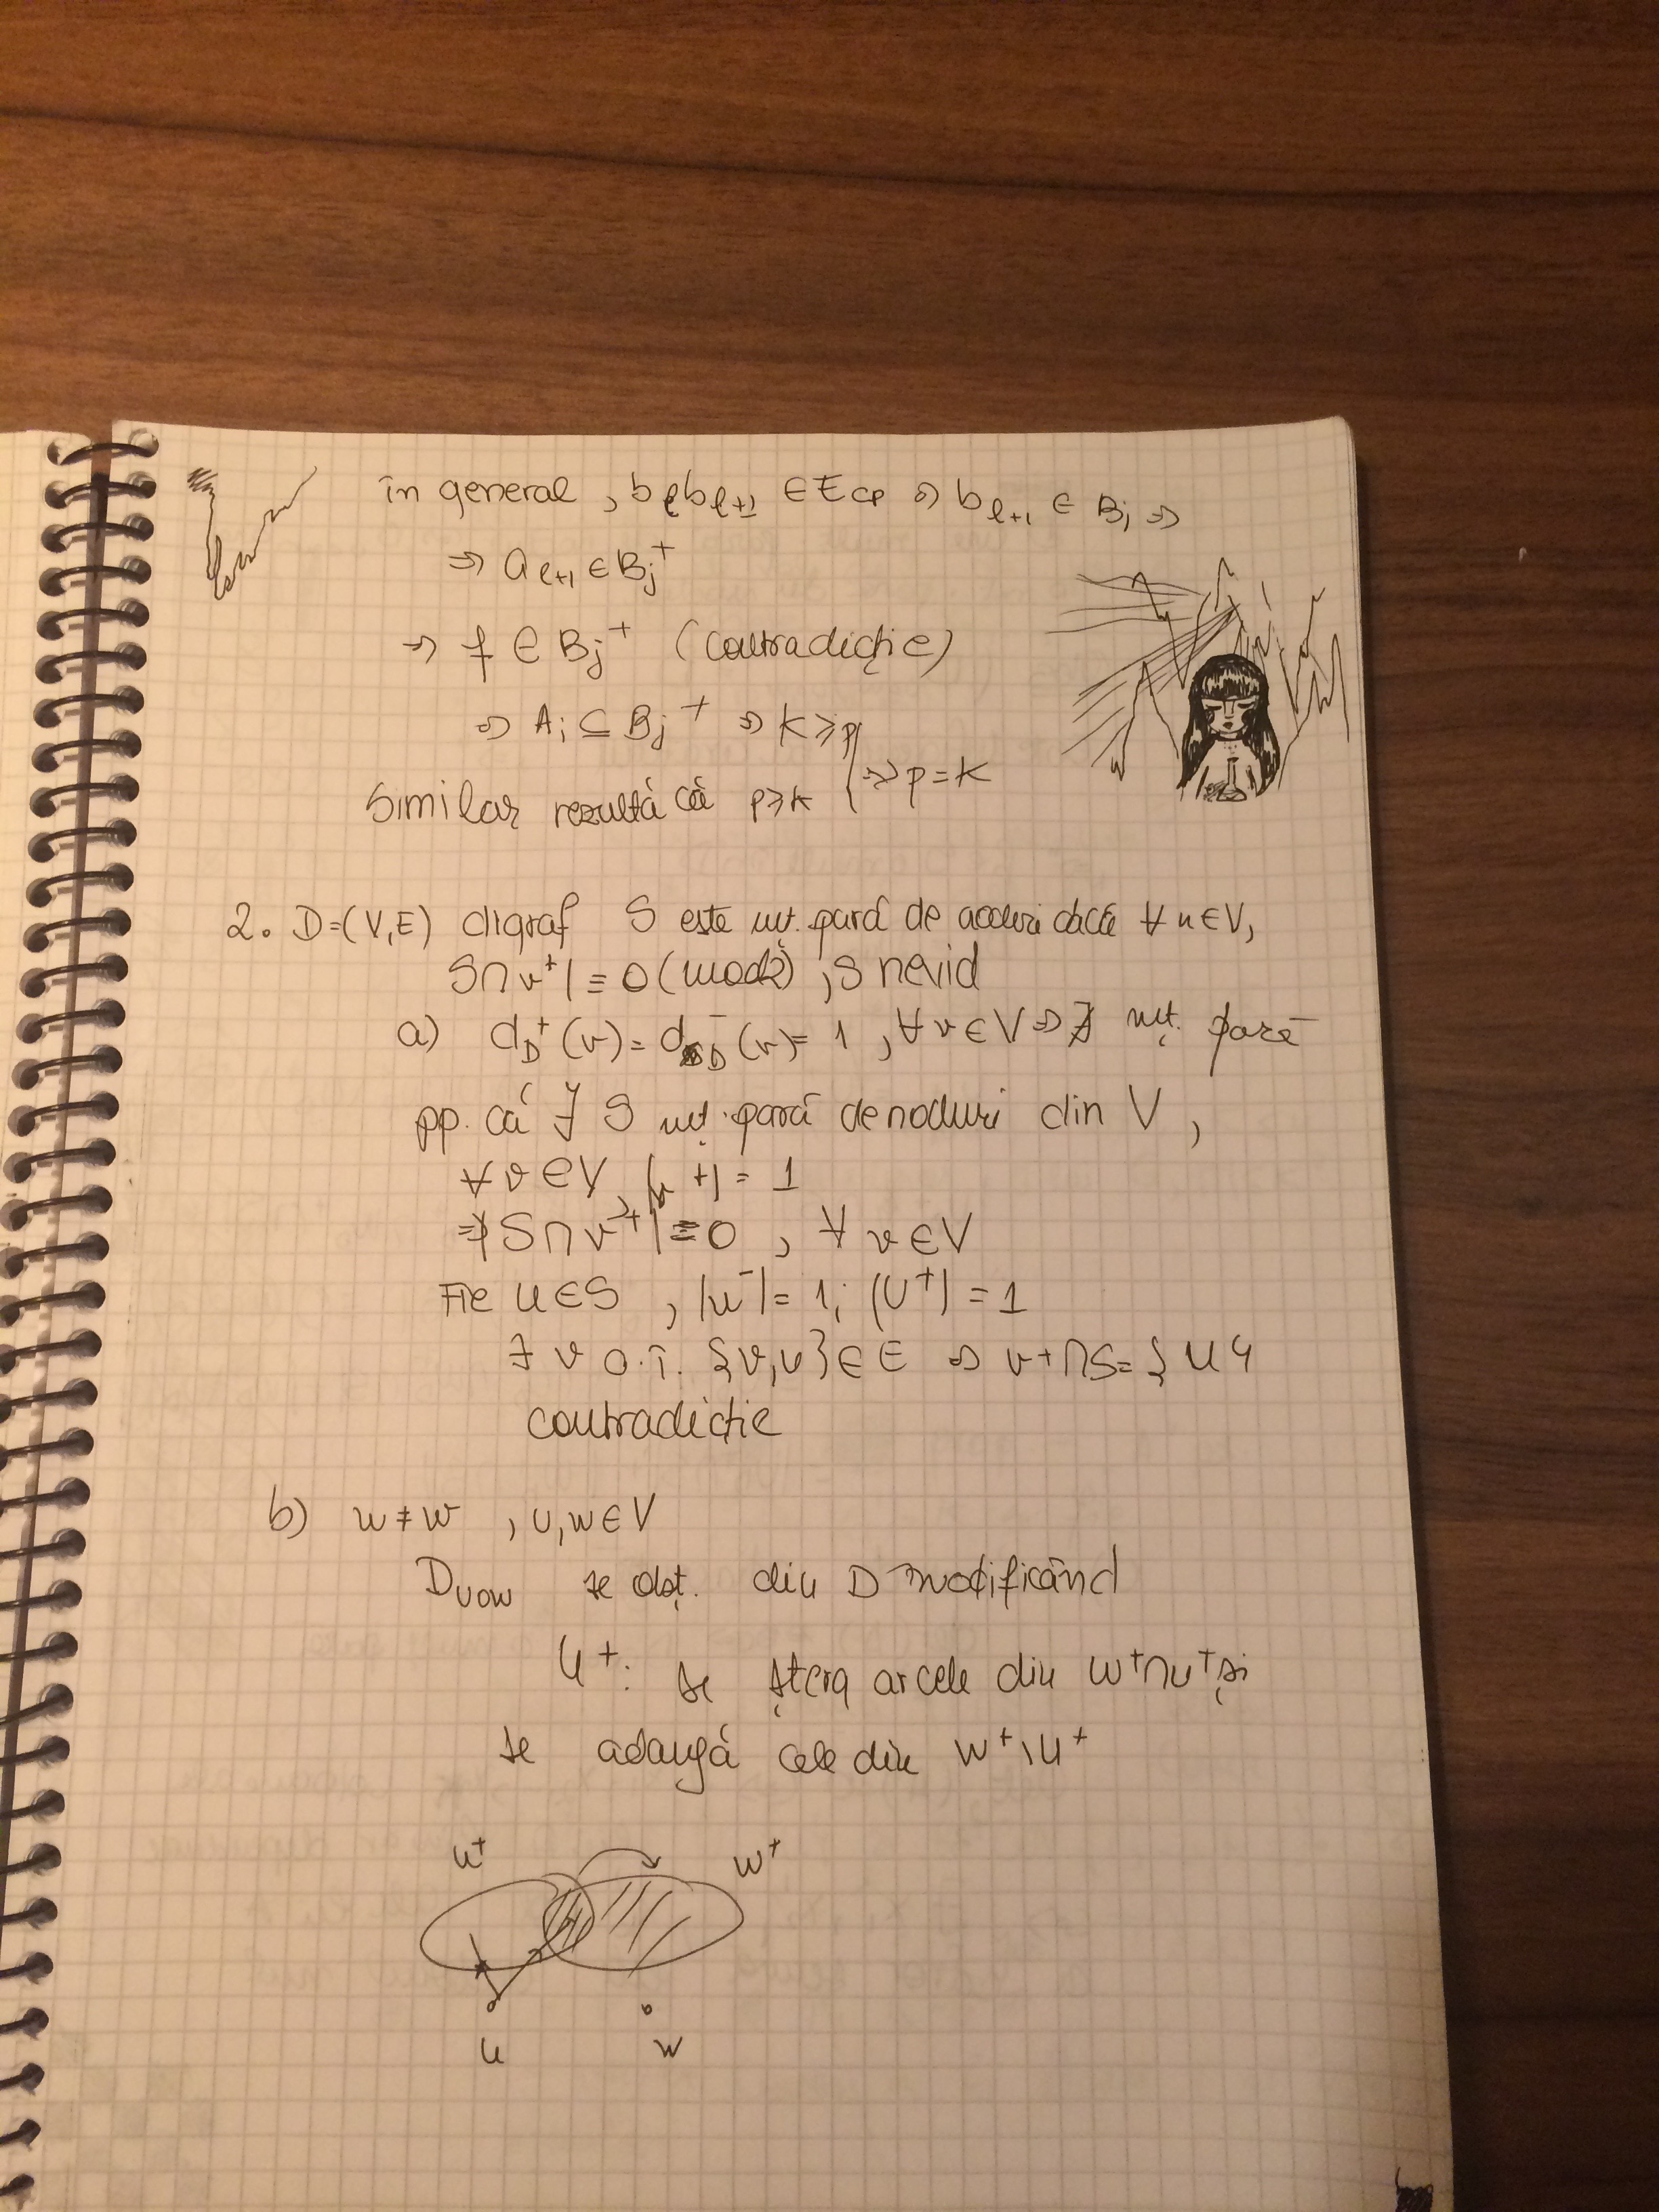 în general, b_l b_{l+1} ∈ E_{CP} ⇒ b_{l+1} ∈ B_j ⇒
⇒ a_{l+1} ∈ B_j^+
⇒ f ∈ B_j^+ (contradicție)
⇒ A_i ⊆ B_j^+ ⇒ k ≥ p
Similar rezultă că p ≥ k ⇒ p = k
2. D=(V,E) digraf S este mț. pară de noduri dacă ∀ u ∈ V,
S∩v^+| ≡ 0 (mod 2), S nevid
a) d_D^+(v) = d_D^-(v) = 1, ∀ v ∈ V ⇒ ∄ mț. pară
pp. că ∃ S mț. pară de noduri din V,
∀ v ∈ V, |v^+| = 1
⇒ |S∩v^+| = 0, ∀ v ∈ V
Fie u ∈ S, |u^-| = 1; |u^+| = 1
∃ v a.î. {v,u} ∈ E ⇒ v+∩S = {u}
contradicție
b) u ≠ w, u,w ∈ V
D_{uow} se obț. din D modificând
u^+: se șterg arcele din w^+∩u^+ și
se adaugă cele din w^+\u^+
u^+ w^+
u w